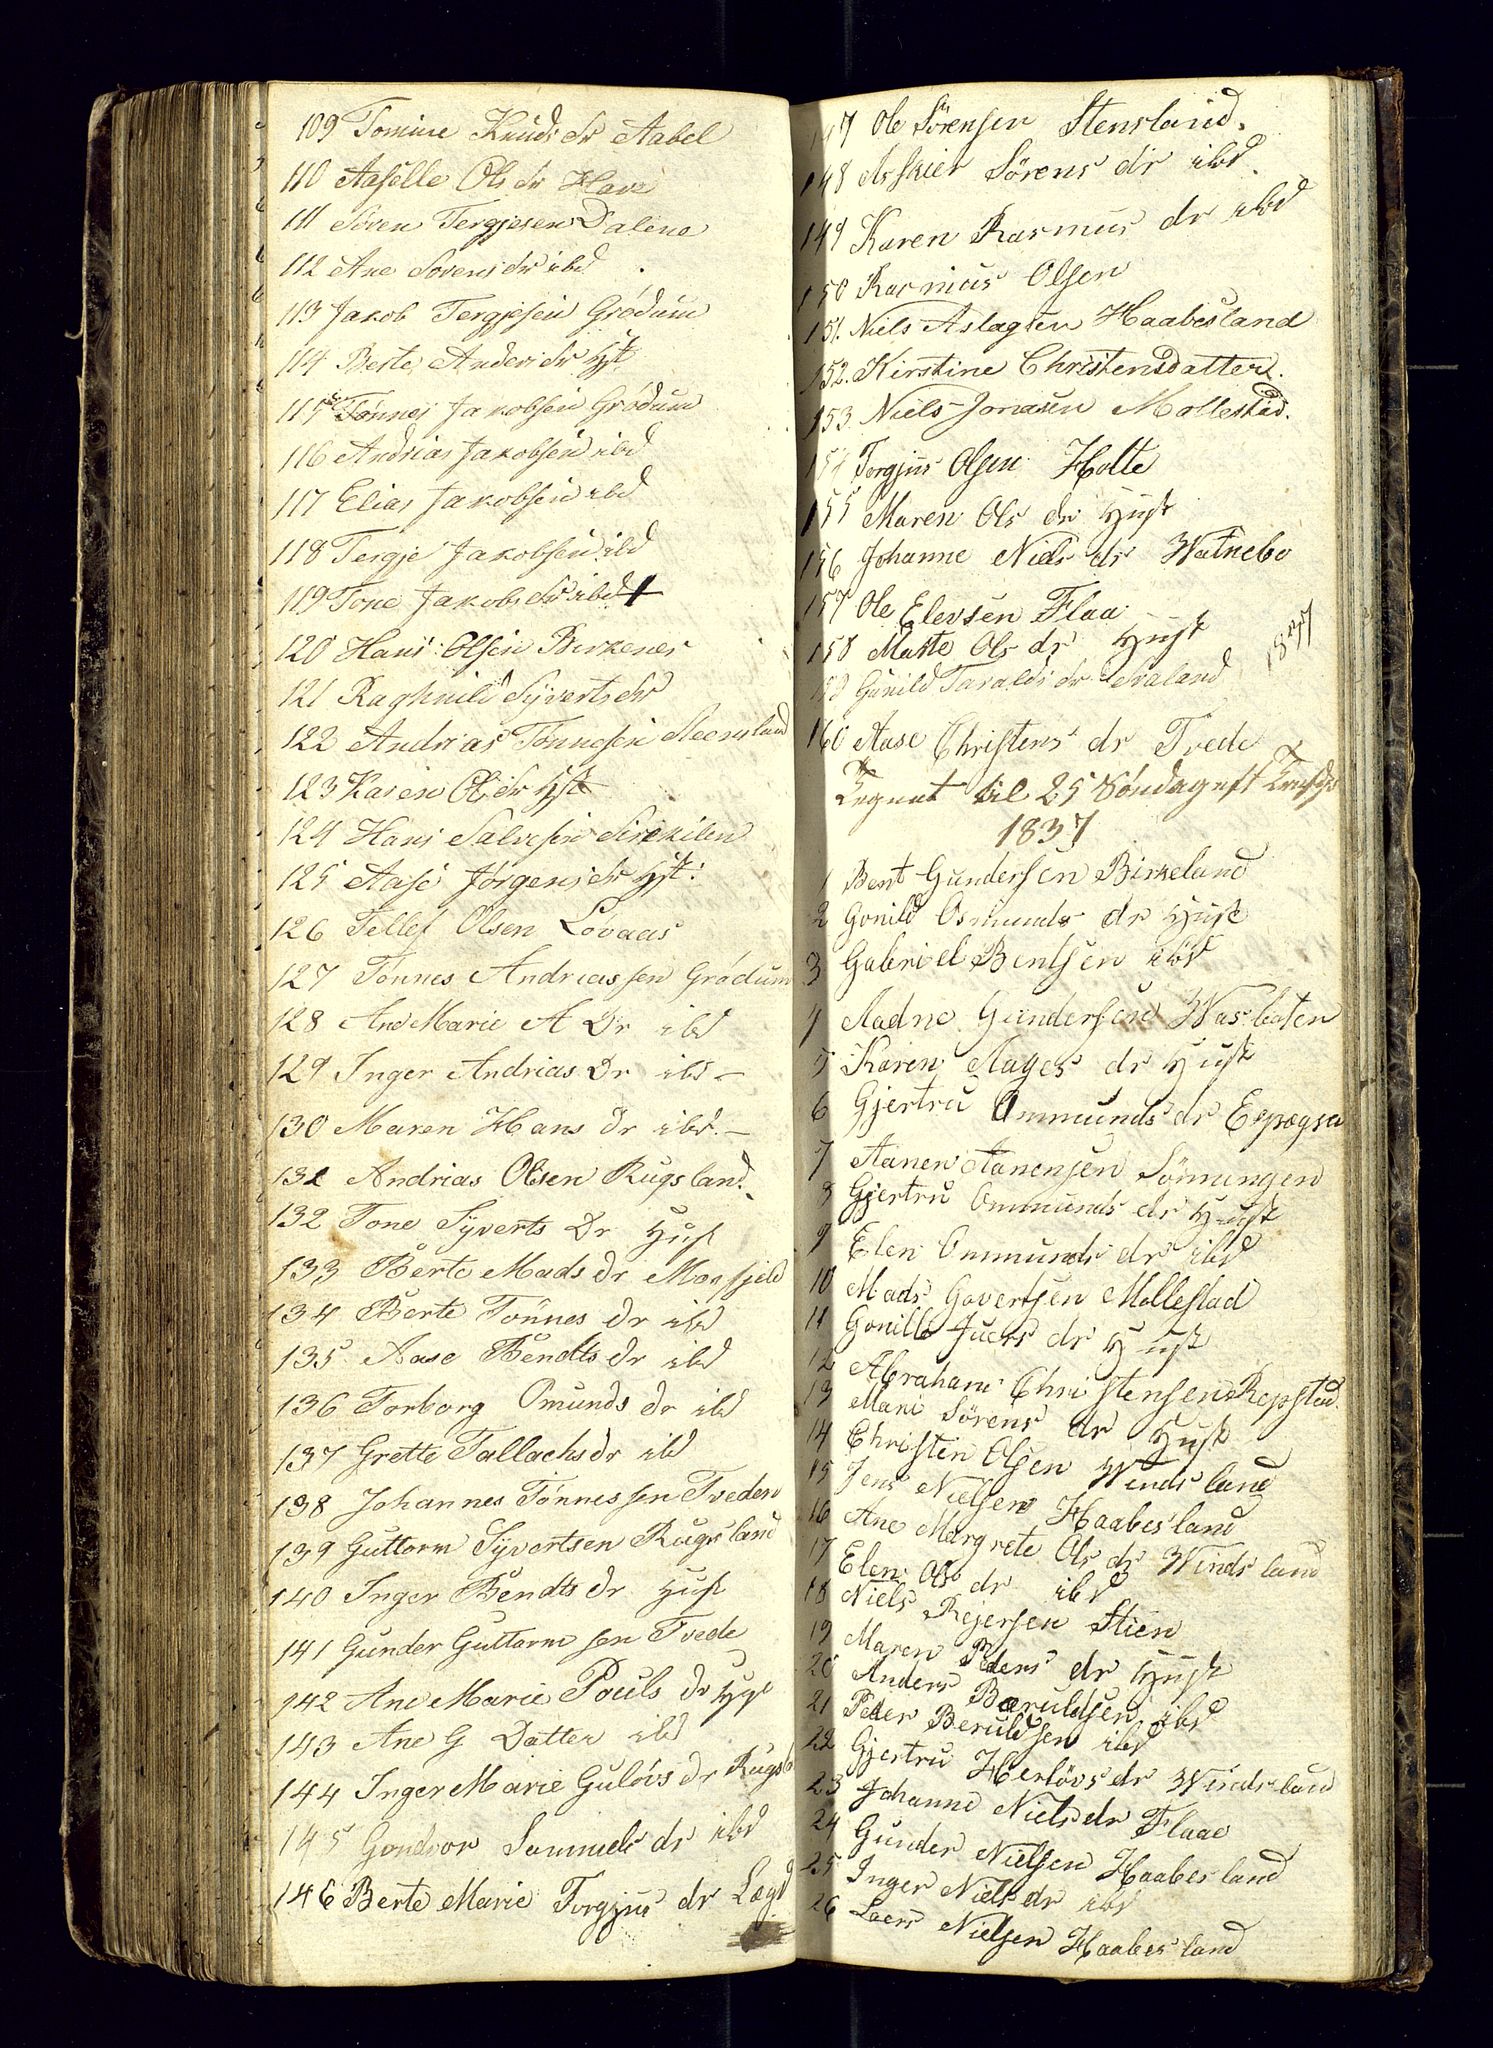 109 Tomine Knuds dr Aabel
110 Aaselle Ols dr
111 Sören Tergjesen Dalene
112 Ane Sörens dr ibd
113 Jakob Tergjesen Grödum
114 Berte Anders dr Hst
115 Tönnes Jakobsen Grödum
116 Andrias Jakobsen ibd
117 Elias Jakobsen ibd
118 Tergje Jakobsen ibd
119 Tone Jakobs dr ibd
120 Hans Olsen Birkenes
121 Raghnild Syverts dr
122 Andrias Tönnesen
123 Karen Ols dr Hst
124 Hans Salvesen
125 Aase Jörgens dr Hst:
126 Tellef Olsen Lövaas
127 Tönnes Andriassen Grödum
128 Ane Marie A Dr ibd
129 Inger Andrias Dr ibd –
130 Maren Hans dr ibd. –
131 Andrias Olsen Rugsland.
132 Tone Syverts Dr Hust
133 Berte Mads dr
134 Berte Tönnes dr ibd
135 Aase Bendts dr ibd
136 Torborg Omunds dr ibd
137 Grette Tallachs dr ibd
138 Johannes Tönnessen Tveden
139 Guttorm Syvertsen Rugsland
140 Inger Bendts dr Hust
141 Gunder Guttormsen Tvede
142 Ane Marie Pouls dr Hust
143 Ane G Datter ibd
144 Inger Marie Gulövs dr Rugsl
145 Gondvor Samuels dr ibd
146 Berte Marie Torgjus dr Lægd
147 Ole Sörensen Stensland.
148 Sörens dr ibd.
149 Karen Rasmus dr ibd
150 Rasmus Olsen
151. Niels Aslagsen Haabesland
152. Kirstine Christensdatter.
153. Niels Jonasen Mollestad.
154 Torgjus Olsen Holte
155 Maren Ols dr Hust
156 Johanne Niels dr Watnebo
157 Ole Elevsen Flaa
158 Marte Ols dr Hust
159 Gunild Taralds dr 1837
160 Aase Christens dr Tvede
Tegnet til 25 Söndag eft
1837
1 Bent Gundersen Birkeland
2 Gonild Osmunds dr Hust
3 Gabriel Bentsen ibd
4 Aadne Gundersen
5 Karen Aages dr Hust
6 Gjertru Ommunds dr
7 Aanen Aanensen Sönningen
8 Gjertru Ommunds dr Hust
9 Elen Ommunds dr ibd
10 Mads Govertsen Mollestad
11 Gonille Juers dr Hust
12 Abraham Christensen Repstad
13 Mari Sörens dr Hust
14 Christen Olsen Windsland
15 Jens Nielsen Haabesland
16 Ane Margrete Ols dr Windsland
17 Elen Ols dr ibd
18 Niels Rejersen Stien
19 Maren Peders dr Hust
20 Anders Bæruldsen ibd
21 Peder Beruldsen ibd
22 Gjertru Herlövs dr Windsland
23 Johanne Niels dr Flaae
24 Gunder Nielsen Haabesland
25 Inger Niels dr ibd
26 Laers Nielsen Haabesland